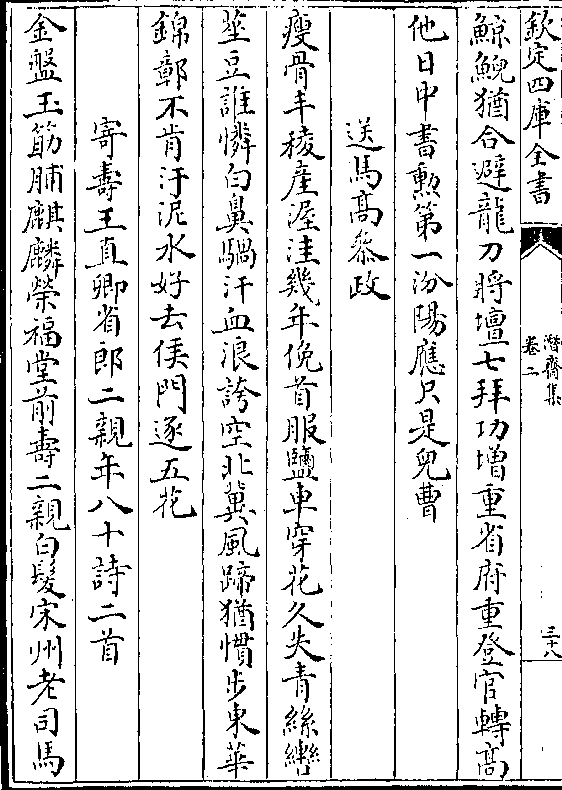 欽定四庫全書
潛齋集
卷二
三十八
鯨鯢猶合避龍刀將壇七拜功增重省府重登官轉髙
他日中書勲第一汾陽應只是兒曹
送馬髙叅政
瘦骨丰稜産渥洼幾年俛首服鹽車穿花久失青絲轡
莝豆誰憐白鼻騧汗血浪誇空北冀風蹄猶慣步東華
錦鄣不肯汙泥水好去侯門逐五花
寄壽王直卿省郎二親年八十詩二首
金盤玉筯脯麒麟榮福堂前壽二親白髪宋州老司馬